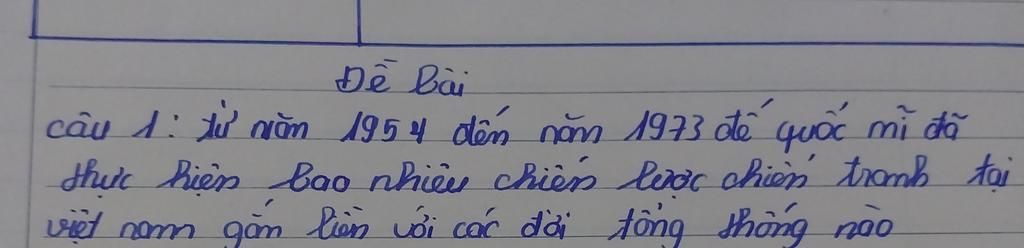 Đề Bài
câu 1: từ năm 1954 đến năm 1973 đế quốc mĩ đã
thực hiện bao nhiêu chiến lược chiến tranh tại
việt nam gắn liền với các đời tổng thống nào